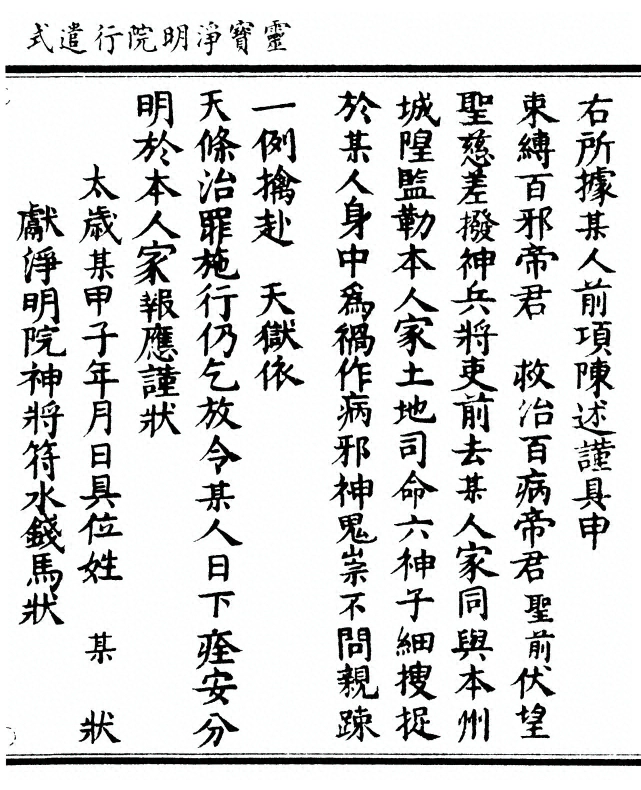 靈寶淨明院行遣式
右所據某人前項陳述謹具申
束縛百邪帝君　救治百病帝君聖前伏望
聖慈差撥神兵將吏前去某人家同與本州
城隍監勒本人家土地司命六神子細搜捉
於某人身中為禍作病邪神鬼祟不問親踈
一例擒赴　天獄依
天條治罪施行仍乞放令某人日下痊安分
明於本人家報應謹狀
太歲某甲子年月日具位姓　某　狀
獻淨明院神將符水錢馬狀